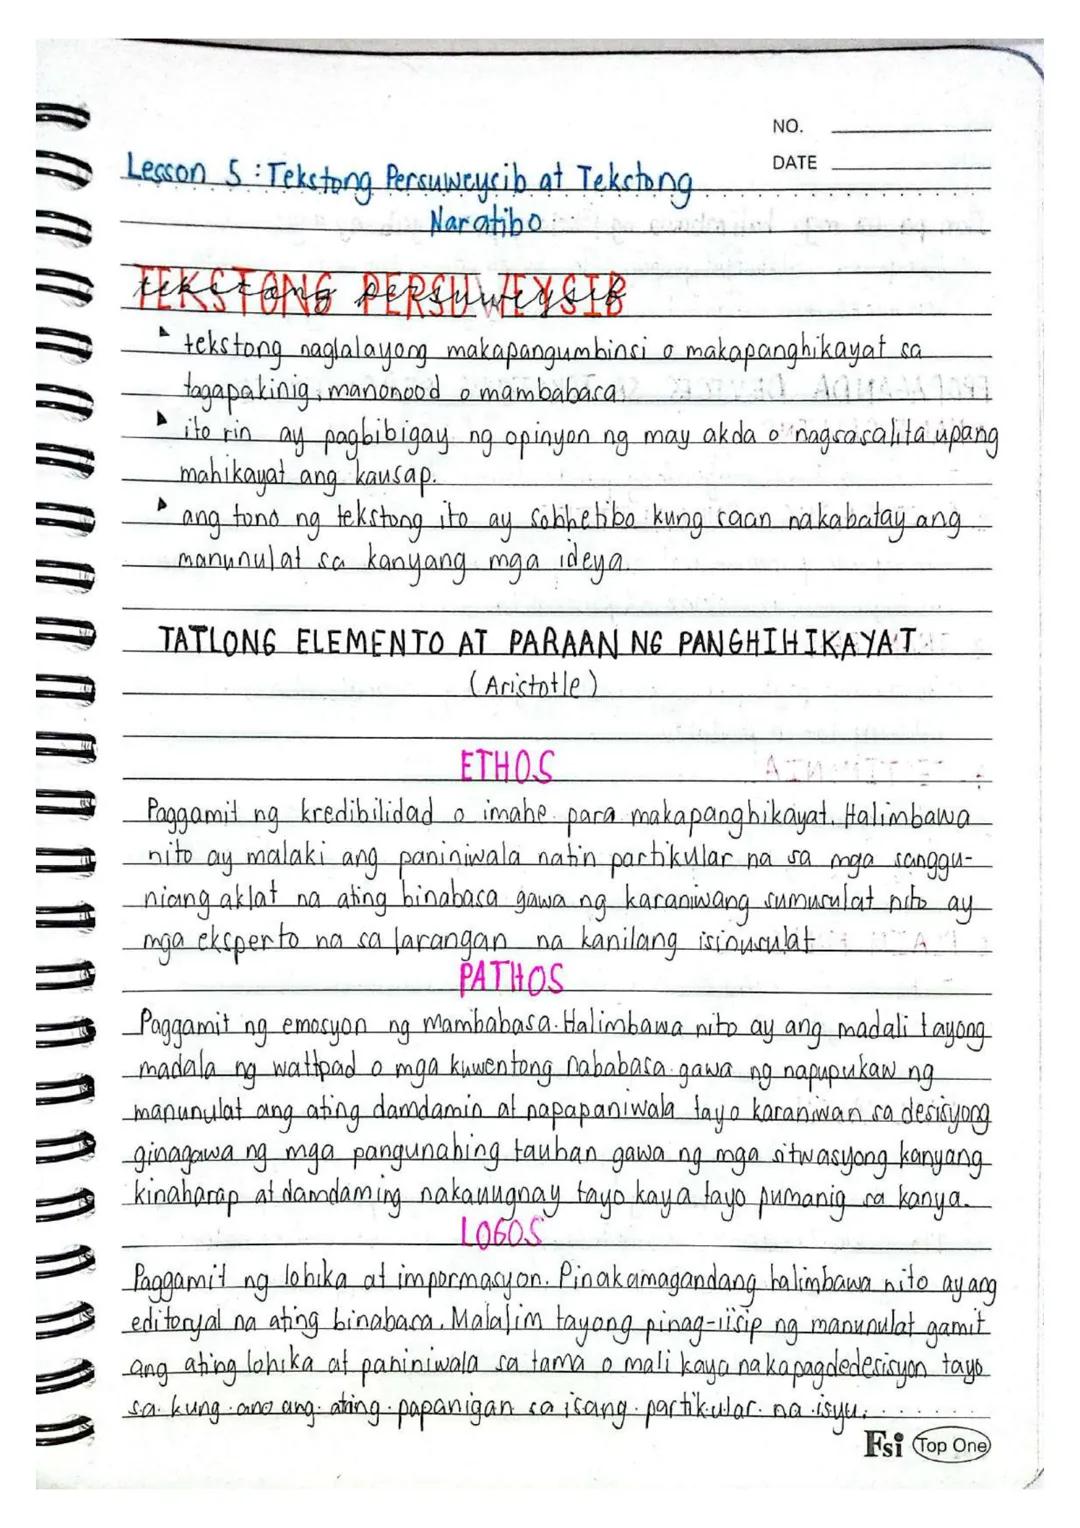 NO.
DATE
Lesson 5 : Tekstong Persuweysib at Tekstong
Naratibo
TEKSTONG PERSUWEYSIB
tekstong persuweysib
tekstong naglalayong makapangumbinsi o makapanghikayat sa
tagapakinig, manonood o mambabasa
ito rin ay pagbibigay ng opinyon ng may akda o nagsasalita upang
mahikayat ang kausap.
ang tono ng tekstong ito ay sobhetibo kung saan nakabatay ang
manunulat sa kanyang mga ideya.
TATLONG ELEMENTO AT PARAAN NG PANGHIHIKAYAT
(Aristotle)
ETHOS
Paggamit ng kredibilidad o imahe para makapanghikayat. Halimbawa
nito ay malaki ang paniniwala natin partikular na sa mga sanggu-
niang aklat na ating binabasa gawa ng karaniwang sumusulat nito ay
mga eksperto na sa larangan na kanilang isinusulat
PATHOS
Paggamit ng emosyon ng Mambabasa. Halimbawa nito ay ang madali tayong
madala ng wattpad o mga kuwentong nababasa gawa ng napupukaw ng
manunulat ang ating damdamin at napapaniwala tayo karaniwan sa desisyong
ginagawa ng mga pangunahing tauhan gawa ng mga sitwasyong kanyang
kinaharap at damdaming nakauugnay tayo kaya tayo pumanig sa kanya.
LOGOS
Paggamit ng lohika at impormasyon. Pinakamagandang halimbawa nito ay ang
editoryal na ating binabasa. Malalim tayong pinag-iisip ng manunulat gamit
ang ating lohika at paniniwala sa tama o mali kaya nakapagdedesisyon tayo
sa kung ano ang ating papanigan sa isang partikular na isyu.
Fsi Top One